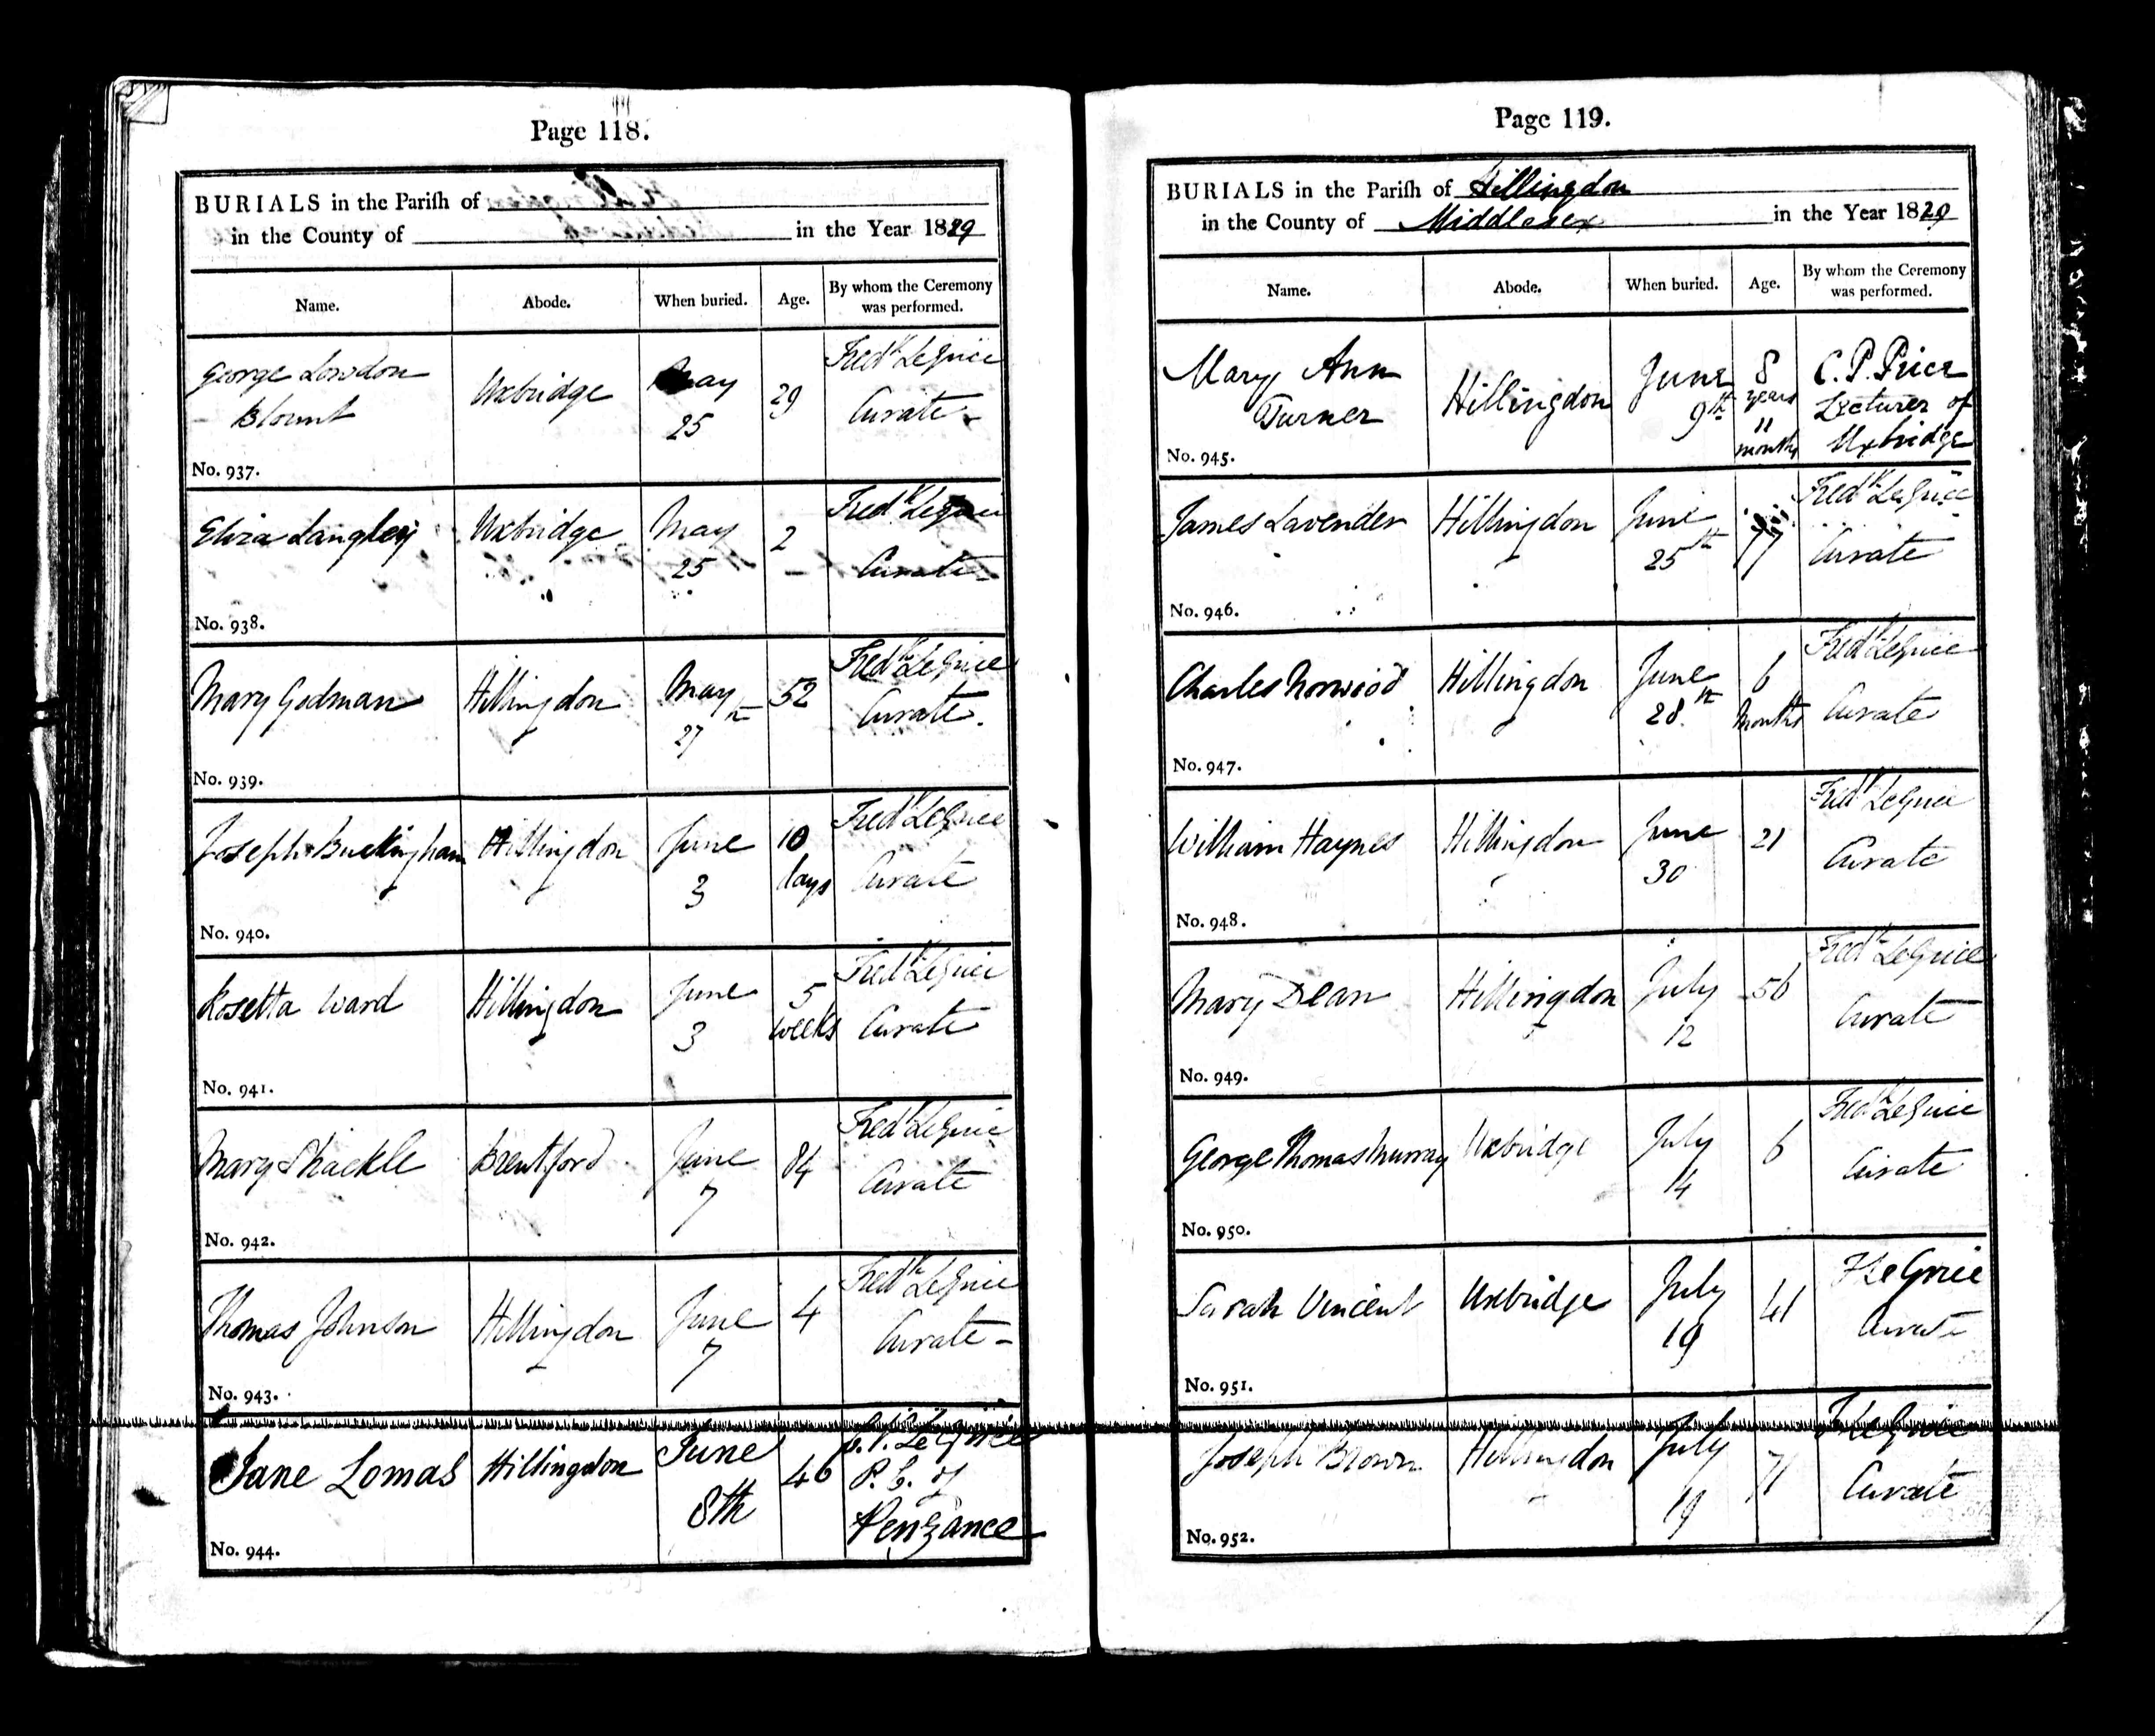 Page 118.
BURIALS in the Parish of
in the County of in the Year 1829
Name. Abode. When buried. Age. By whom the Ceremony was performed.
George Lowdon
Blount
Uxbridge
May
25
29
Fredk LeGrice
Curate
No. 937.
Eliza Langley
Uxbridge
May
25
2
Fredk LeGrice
Curate
No. 938.
Mary Godman
Hillingdon
May
27th
52
Fredk LeGrice
Curate.
No. 939.
Joseph Buckingham
Hillingdon
June
3
10
days
Fredk LeGrice
Curate
No. 940.
Rosetta Ward
Hillingdon
June
3
5
weeks
Fredk LeGrice
Curate
No. 941.
Mary Shackle
Brentford
June
7
84
Fredk LeGrice
Curate
No. 942.
Thomas Johnson
Hillingdon
June
7
4
Fredk LeGrice
Curate -
No. 943.
Jane Lomas
Hillingdon
June
8th
46
C. V. LeGrice
P. C. of
Penzance
No. 944.
Page 119.
BURIALS in the Parish of Hillingdon
in the County of Middlesex in the Year 1829
Name. Abode. When buried. Age. By whom the Ceremony was performed.
Mary Ann
Turner
Hillingdon
June
9th
8
years
11
months
C. P. Price
Lecturer of
Uxbridge
No. 945.
James Lavender
Hillingdon
June
25th
77
Fredk LeGrice
Curate
No. 946.
Charles Norwood
Hillingdon
June
28th
6
Months
Fredk LeGrice
Curate
No. 947.
William Haynes
Hillingdon
June
30
21
Fredk LeGrice
Curate
No. 948.
Mary Dean
Hillingdon
July
12
56
Fredk LeGrice
Curate
No. 949.
George Thomas Murray
Uxbridge
July
14
6
Fredk LeGrice
Curate
No. 950.
Sarah Vincent
Uxbridge
July
19
41
F LeGrice
Curate
No. 951.
Joseph Brown
Hillingdon
July
19
71
F LeGrice
Curate
No. 952.